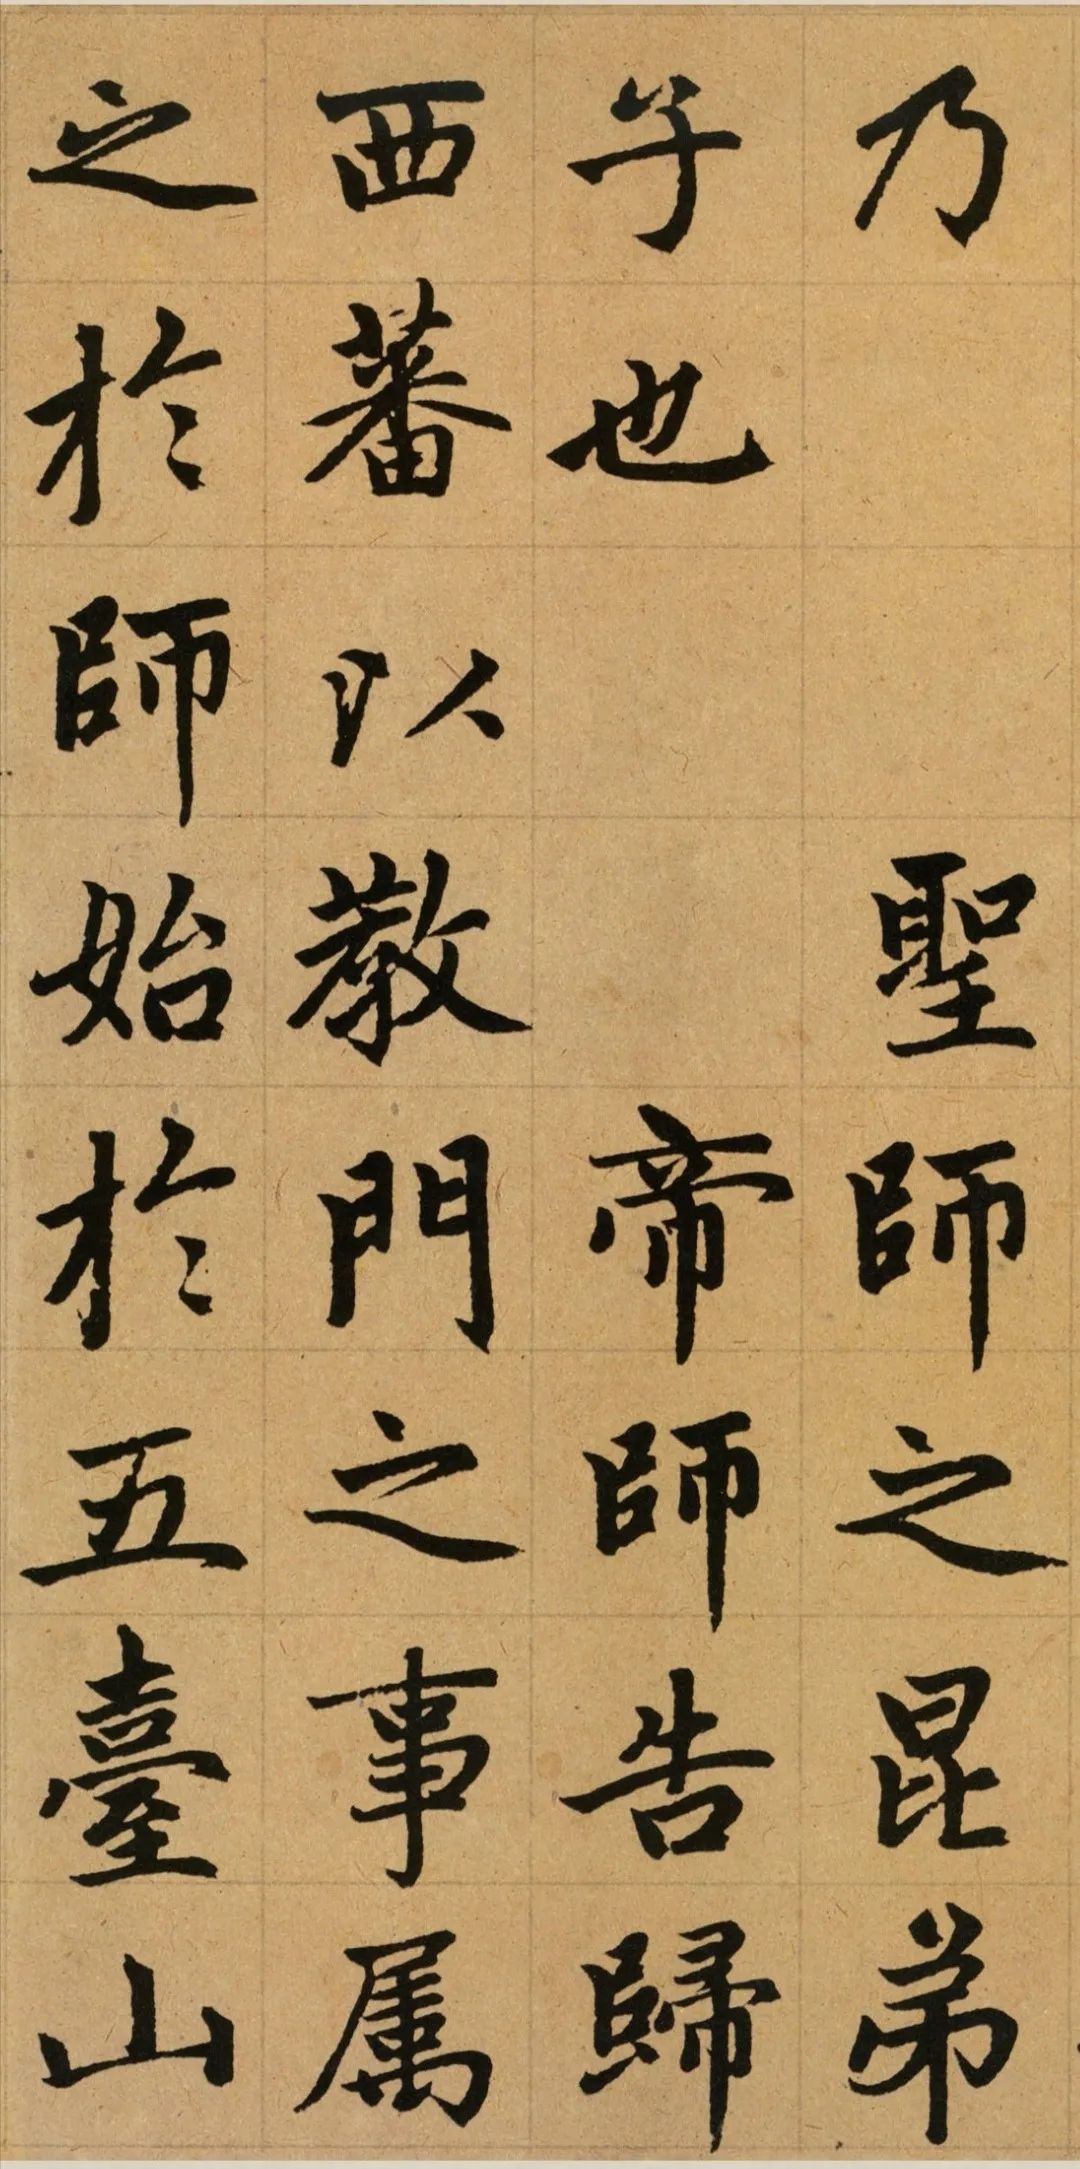 乃 聖師之昆弟
子也 帝師告歸
西蕃以教門之事属
之於師始於五臺山